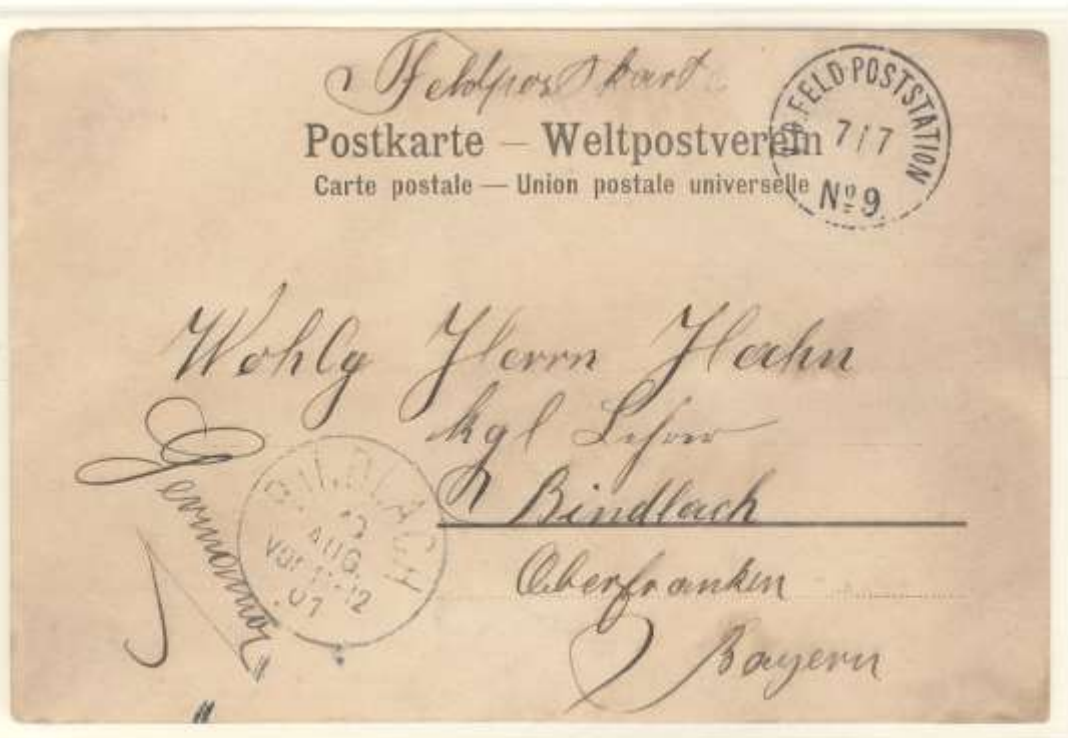 Feldpostkarte
Postkarte — Weltpostverein
Carte postale — Union postale universelle
KD.FELD-POSTSTATION
7/7
Nº 9.
Wohlg Herrn Hahn
kgl Lehrer
Bindlach
Oberfranken
Bayern
Germania
"
BINDLACH
AUG.
VOR. 11-12
07